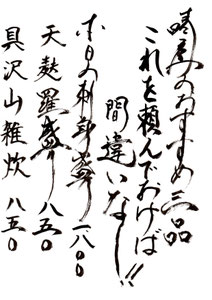 のおすすめ三品
これを頼んでおけば
間違いなし!!
本日の刺身盛り 一八〇〇
天麩羅盛り 八五〇
具沢山雑炊 八五〇